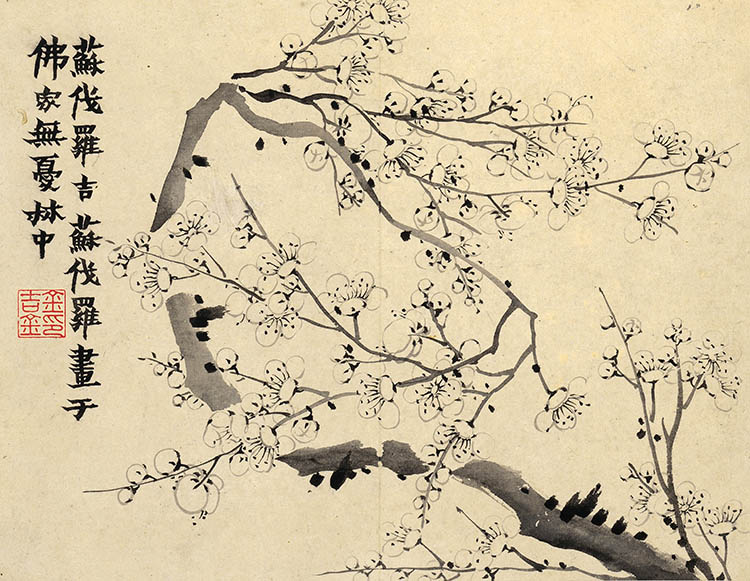 蘇伐羅吉蘇伐羅畫于
佛家無憂林中
金吉金印